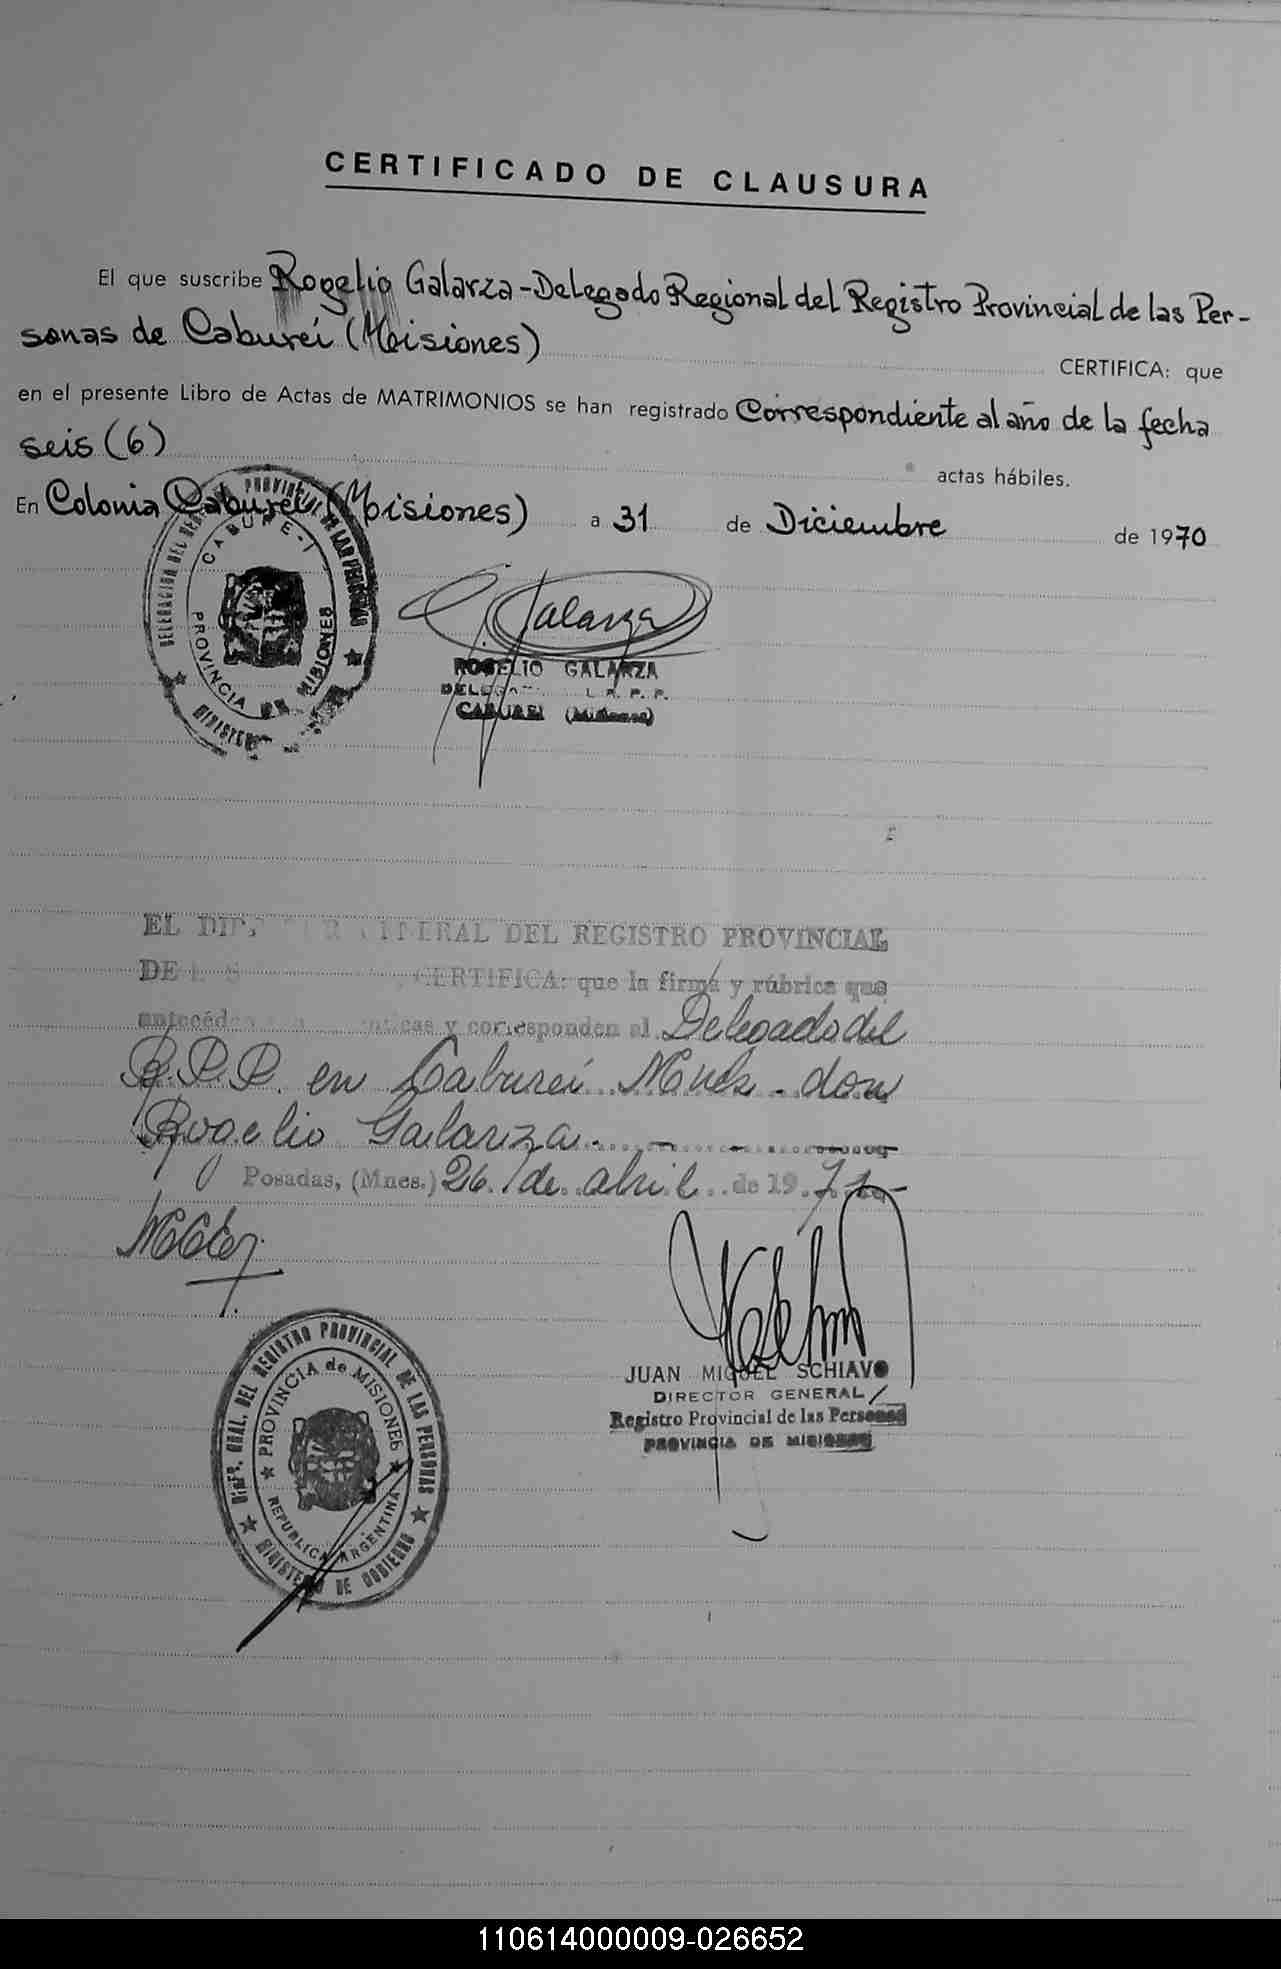 CERTIFICADO DE CLAUSURA
El que suscribe Rogelio Galarza - Delegado Regional del Registro Provincial de las Per-
sonas de Cabureí (Misiones) CERTIFICA: que
en el presente Libro de Actas de MATRIMONIOS se han registrado Correspondiente al año de la fecha
seis (6) actas hábiles.
En Colonia Cabureí (Misiones) a 31 de Diciembre de 1970
DELEGACION DEL PROVINCIAL DE LAS PERSONAS
CABURE-I
PROVINCIA DE MISIONES
Galarza
ROGELIO GALARZA
CABUREI (Misiones)
EL GENERAL DEL REGISTRO PROVINCIAL
DE CERTIFICA: que la firma y rúbrica que
y corresponden al Delegado del
R.P.P. en Cabureí Mnes - don
Rogelio Galarza.
Posadas, (Mnes.) 26 de abril de 1971
DIREC. GRAL. DEL REGISTRO PROVINCIAL DE LAS PERSONAS
PROVINCIA de MISIONES
REPUBLICA ARGENTINA
MINISTERIO DE GOBIERNO
JUAN MIGUEL SCHIAVO
DIRECTOR GENERAL
Registro Provincial de las Personas
PROVINCIA DE MISIONES
110614000009-026652